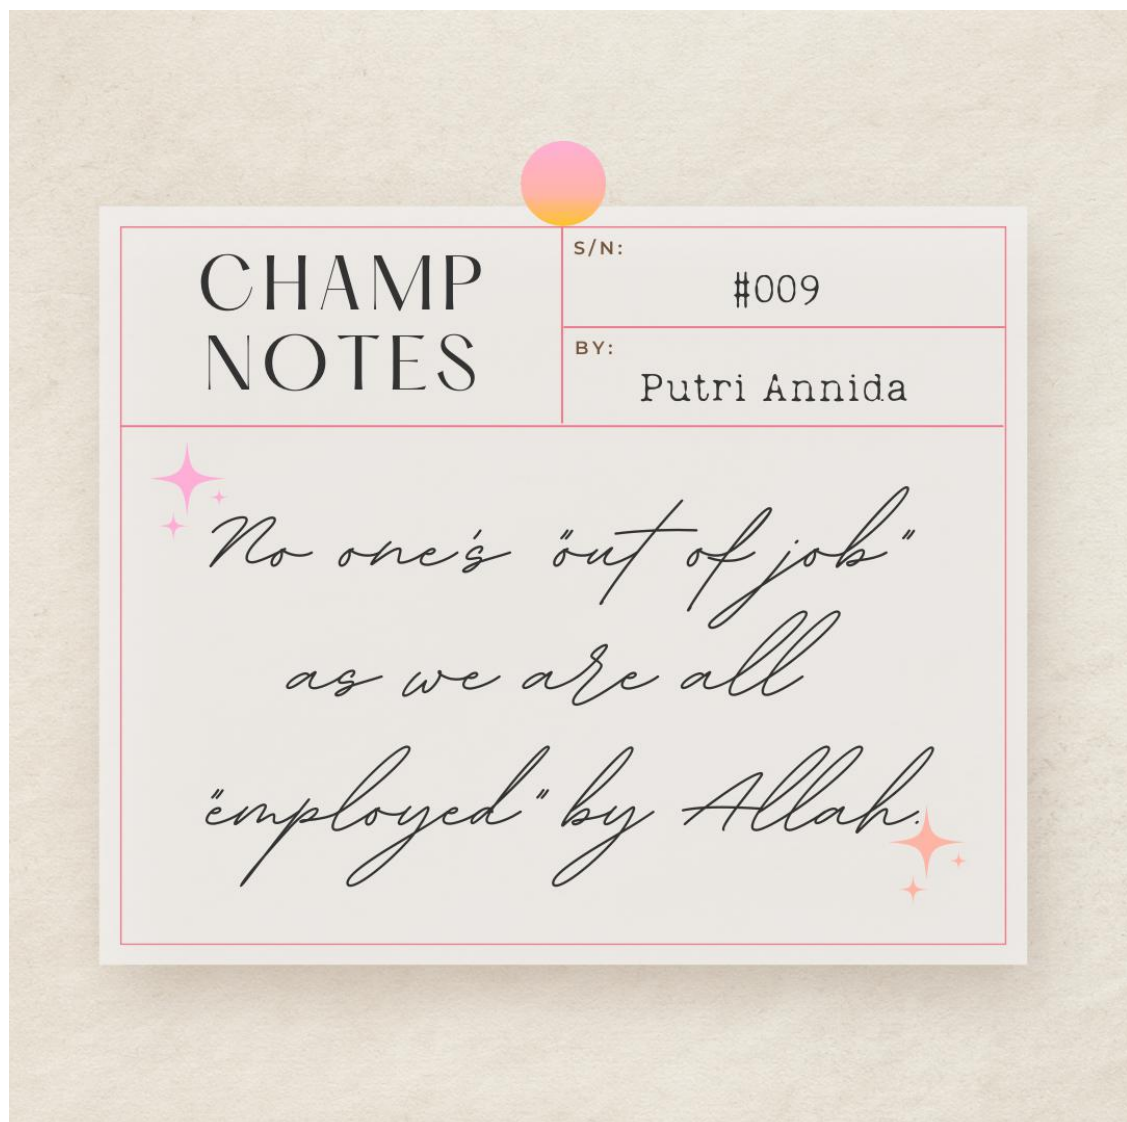 CHAMP
NOTES
S/N:
#009
BY:
Putri Annida
No one's "out of job"
as we are all
"employed" by Allah.